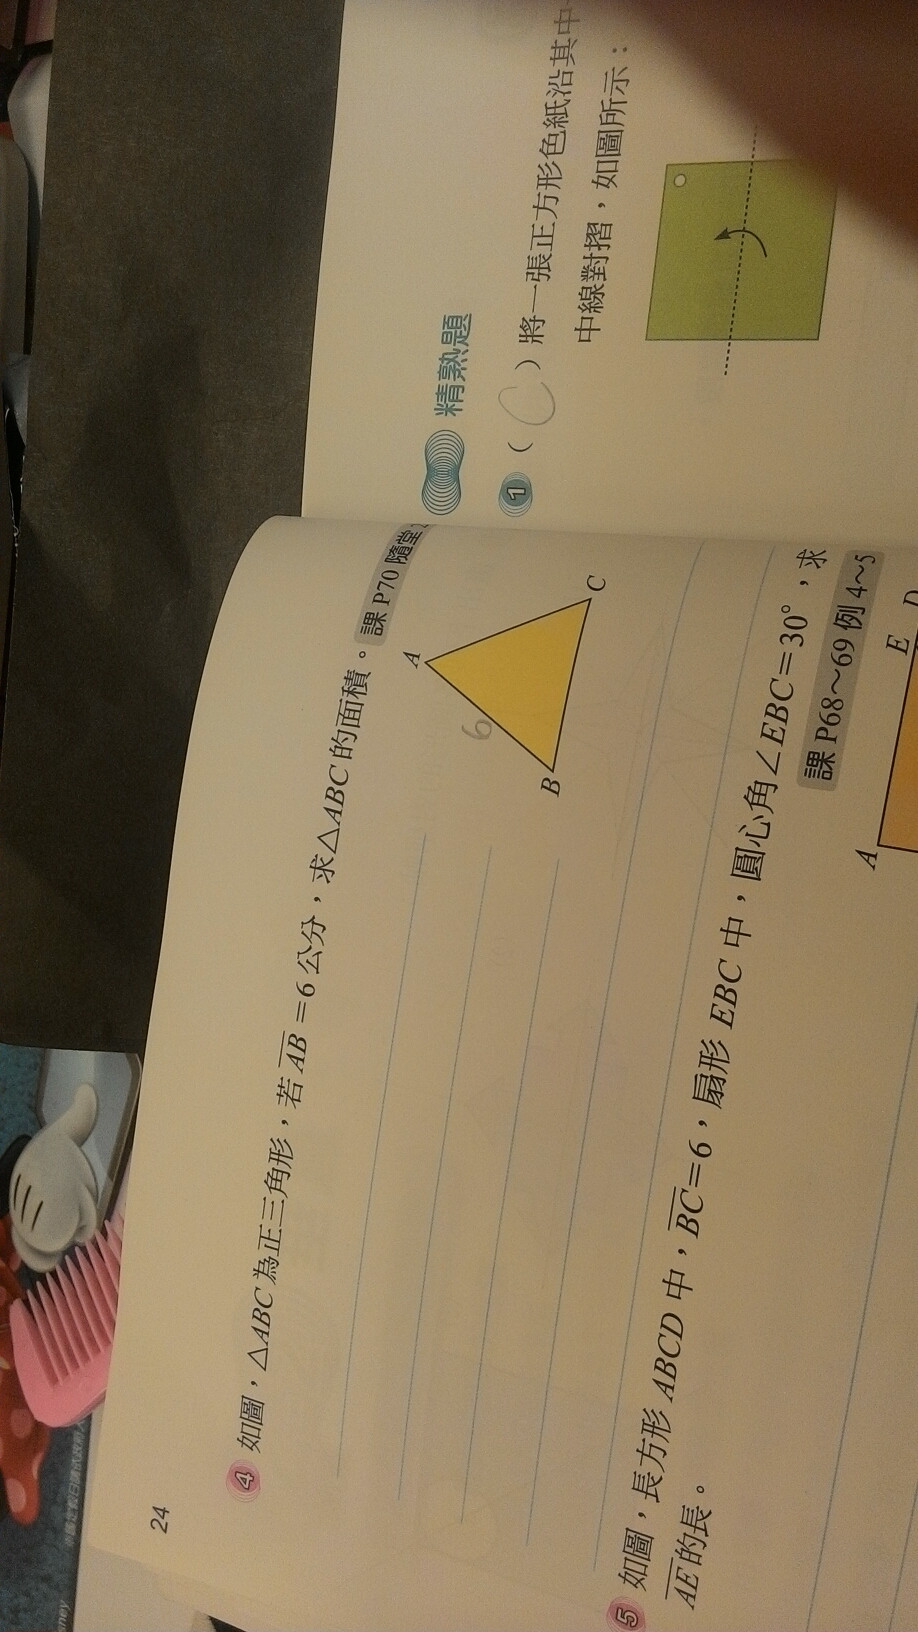 24
4 如圖，△ABC為正三角形，若AB=6公分，求△ABC的面積。 課P70 隨堂
A
6
B
C
5 如圖，長方形ABCD中，BC=6，扇形EBC中，圓心角∠EBC=30°，求
AE的長。
課P68～69 例4～5
A
E
D
精熟題
1 ( C ) 將一張正方形色紙沿其中
中線對摺，如圖所示：